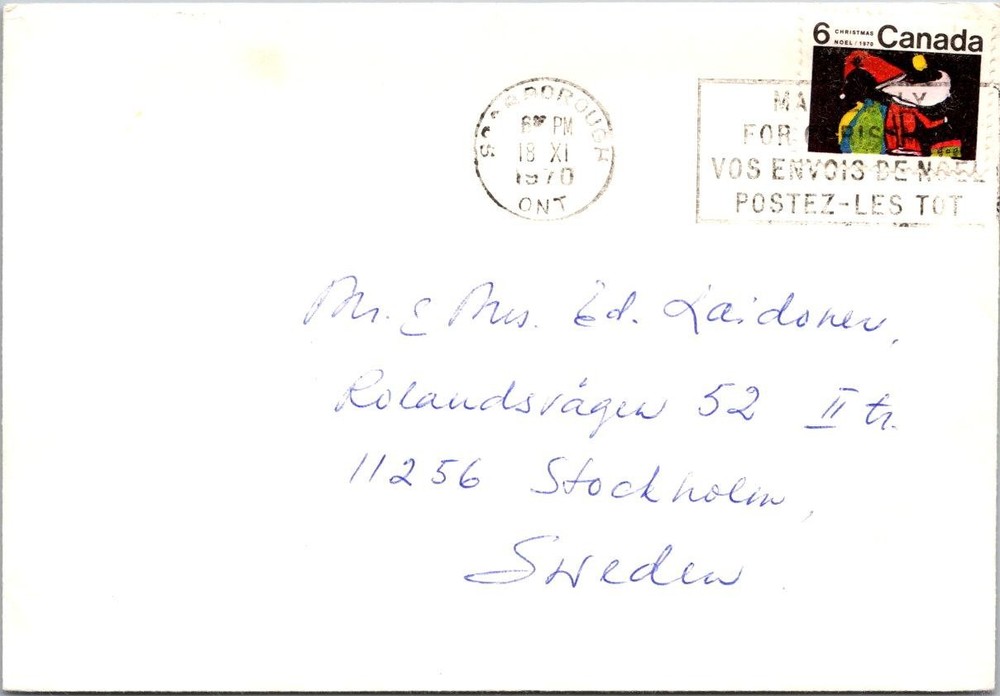 6 CHRISTMAS NOEL/1970 Canada
SCARBOROUGH
6 PM
18 XI
1970
ONT
FOR
VOS ENVOIS DE NOEL
POSTEZ-LES TOT
Mr. & Mrs. Ed. Laidoner,
Rolandsvägen 52 II tr.
11256 Stockholm,
Sweden